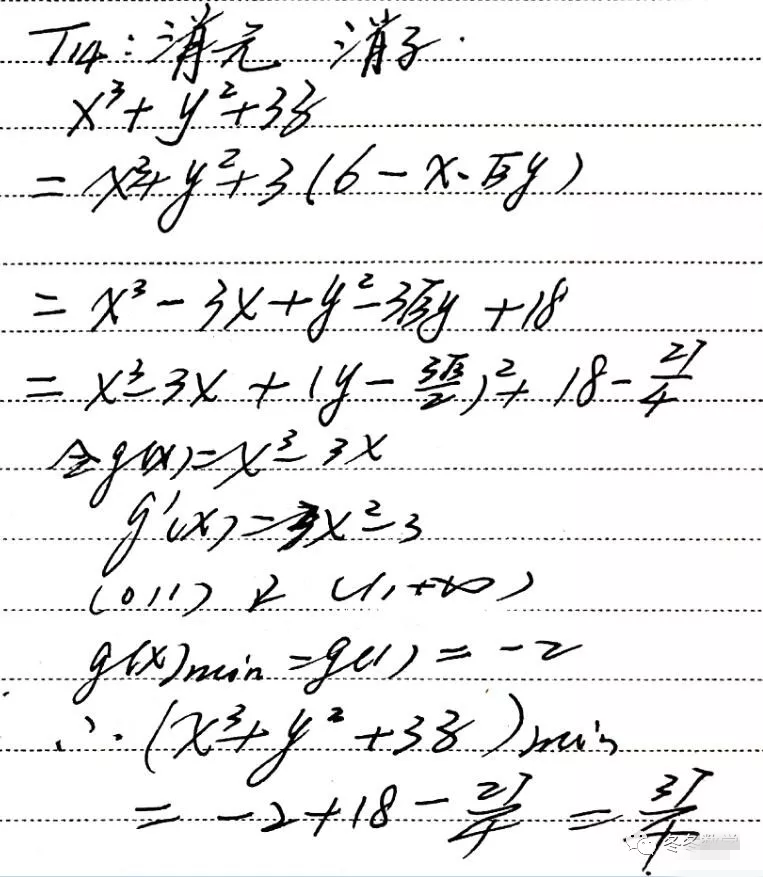 T14: 消元 消z.
x³+y²+3z
=x³+y²+3(6-x-√3y)
=x³-3x+y²-3√3y+18
=x³-3x+(y-3√3/2)²+18-27/4
令g(x)=x³-3x
g'(x)=3x²-3
(0,1)↓(1,+∞)
g(x)min=g(1)=-2
∴(x³+y²+3z)min
=-2+18-27/4=37/4
冬冬数学